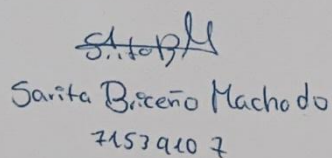 Sarita Briceño Machado
71539107